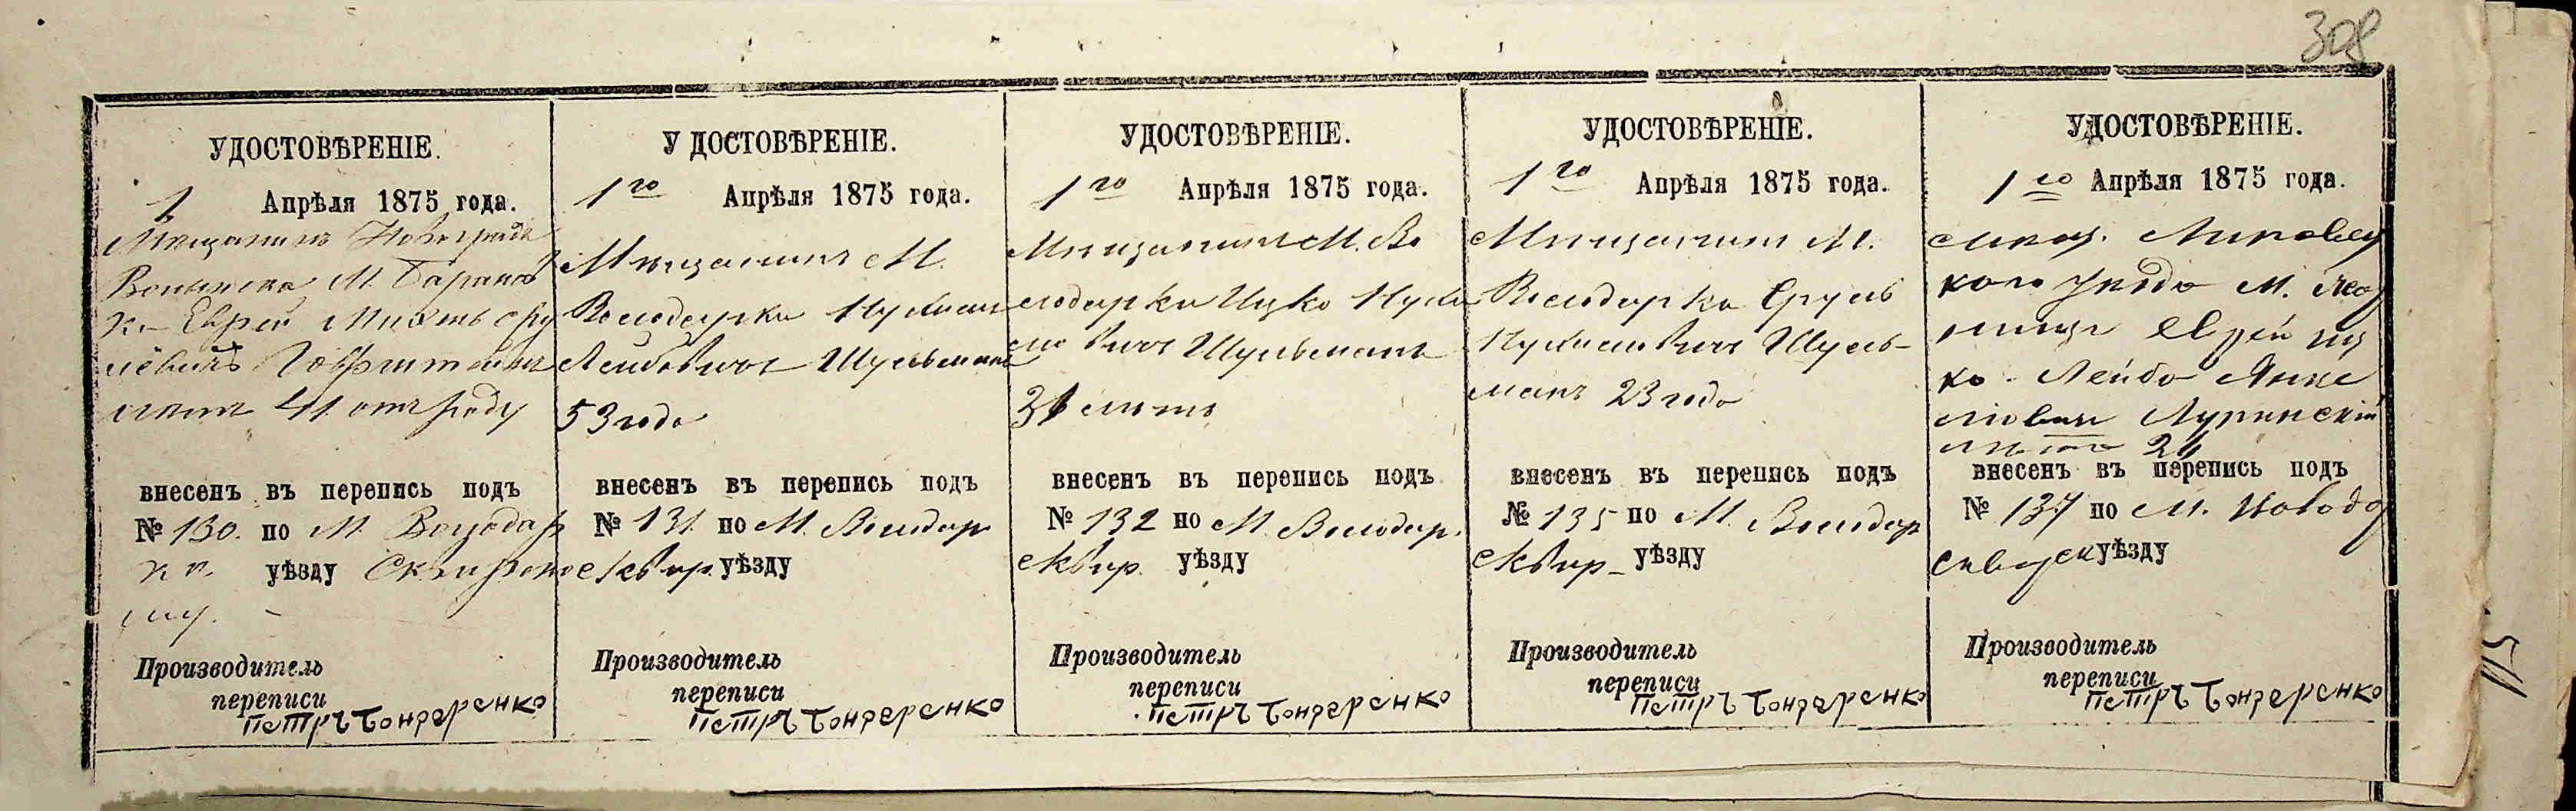 308
УДОСТОВѢРЕНІЕ.
1 Апрѣля 1875 года.
Мещанинъ Новоградъ
Волынска М. Баранов
ки Еврей
41 отъ роду
внесенъ въ перепись подъ
№ 130. по М. Володар
ки уѣзду Сквирско
му.
Производитель
переписи
Петръ Бондеренко
У ДОСТОВѢРЕНІЕ.
1го Апрѣля 1875 года.
Мѣщанинъ М.
Володарки Нухим
Лейбовичъ Шульманъ
53 года
внесенъ въ перепись подъ
№ 131. по М. Володар
сквир. уѣзду
Производитель
переписи
Петръ Бондеренко
УДОСТОВѢРЕНІЕ.
1го Апрѣля 1875 года.
Мѣщанинъ М. Во
лодарки Ицко Нухи
мовичъ Шульманъ
31 лѣтъ
внесенъ въ перепись подъ
№ 132 по М. Володар.
сквир. уѣзду
Производитель
переписи
Петръ Бондеренко
УДОСТОВѢРЕНІЕ.
1го Апрѣля 1875 года.
Мѣщанинъ М.
Володарка Сруль
Нухимовичъ Шуль-
манъ 23 года
внесенъ въ перепись подъ
№ 135 по М. Володар
сквир- уѣзду
Производитель
переписи
Петръ Бондеренко
УДОСТОВѢРЕНІЕ.
1го Апрѣля 1875 года.
мещ. Липовец
кого уѣзда М.
еврей Иц
ко - Лейба Янке
лѣто 24
внесенъ въ перепись подъ
№ 137 по М. Володар
сквирск уѣзду
Производитель
переписи
Петръ Бондеренко